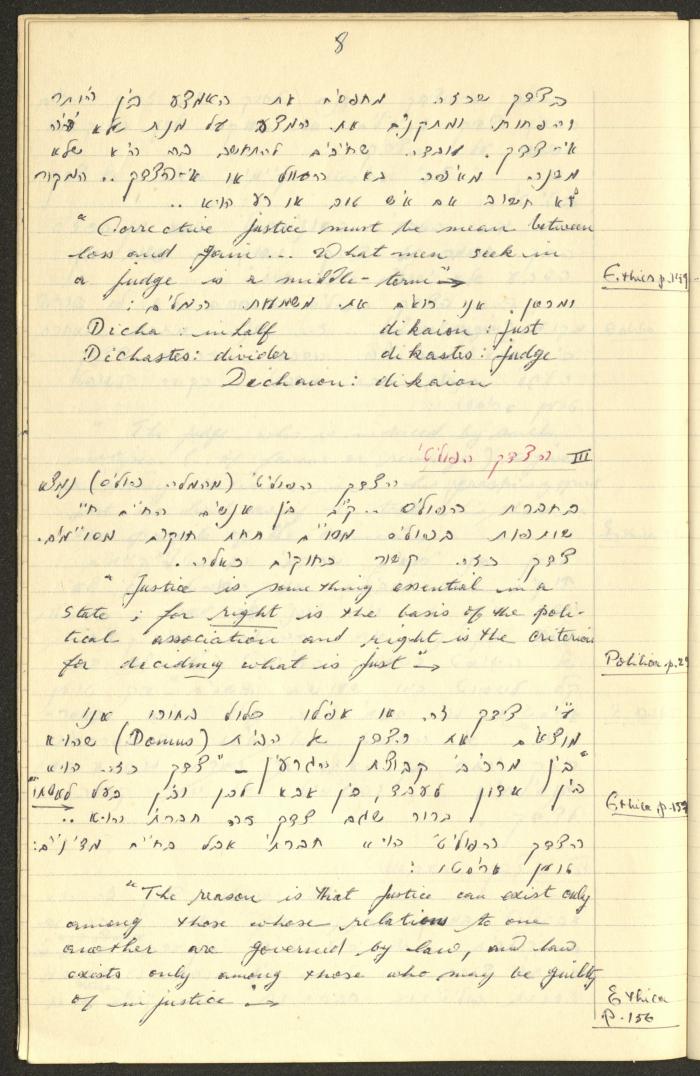 8
בצדק שכזה. מחפשים את האמצע בין היותר
והפחות ומתקנים את המצע על מנת שלא יהיה
אי-צדק. עובדה. שחייבים להתחשב בה היא שלא
משנה. מאיפה. בא העוול או אי-הצדק.. המקור
לא חשוב אם איש טוב או רע הוא..
"Corrective Justice must be mean between
loss and gain... What men seek in
a judge is a middle-term"→
Ethica p.149
ומכאן אנו רואים את משמעות המלים:
Dicha: in half dikaion: just
Dichastes: divider dikastes: judge
Dichaion: dikaion
III הצדק הפוליטי
הצדק הפוליטי (מהמלה פוליס) נמצא
בחברת הפוליס.. קיים בין אנשים החיים חיי
שותפות בפוליס מסויים תחת חוקים מסויימים.
צדק כזה. קשור בחוקים כאלה..
"Justice is something essential in a
State; for right is the basis of the poli-
tical association and right is the criterion
for deciding what is Just"→
Politica p.29
ע"י צדק זה. או אפילו כלול בתוכו אנו
מוצאים את הצדק של הבית (Domus) שהוא
בין מרכיבי קבוצת הגרעין – "צדק כזה הוא
בין אדון לעבד, בין אבא לבן ובין בעל לאשתו"
Ethica p.157
ברור שגם צדק זה חברתי הוא..
הצדק הפוליטי הוא חברתי אבל בחיים מדיניים:
טוען אריסטו:
"The reason is that Justice can exist only
among those whose relations to one
another are governed by law, and law
exists only among those who may be guilty
of injustice"→
Ethica
p.156